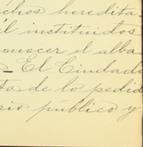 chos heredita
il instituidos
conocer el alba
- El Ciudada
ta de lo pedid
rio público y